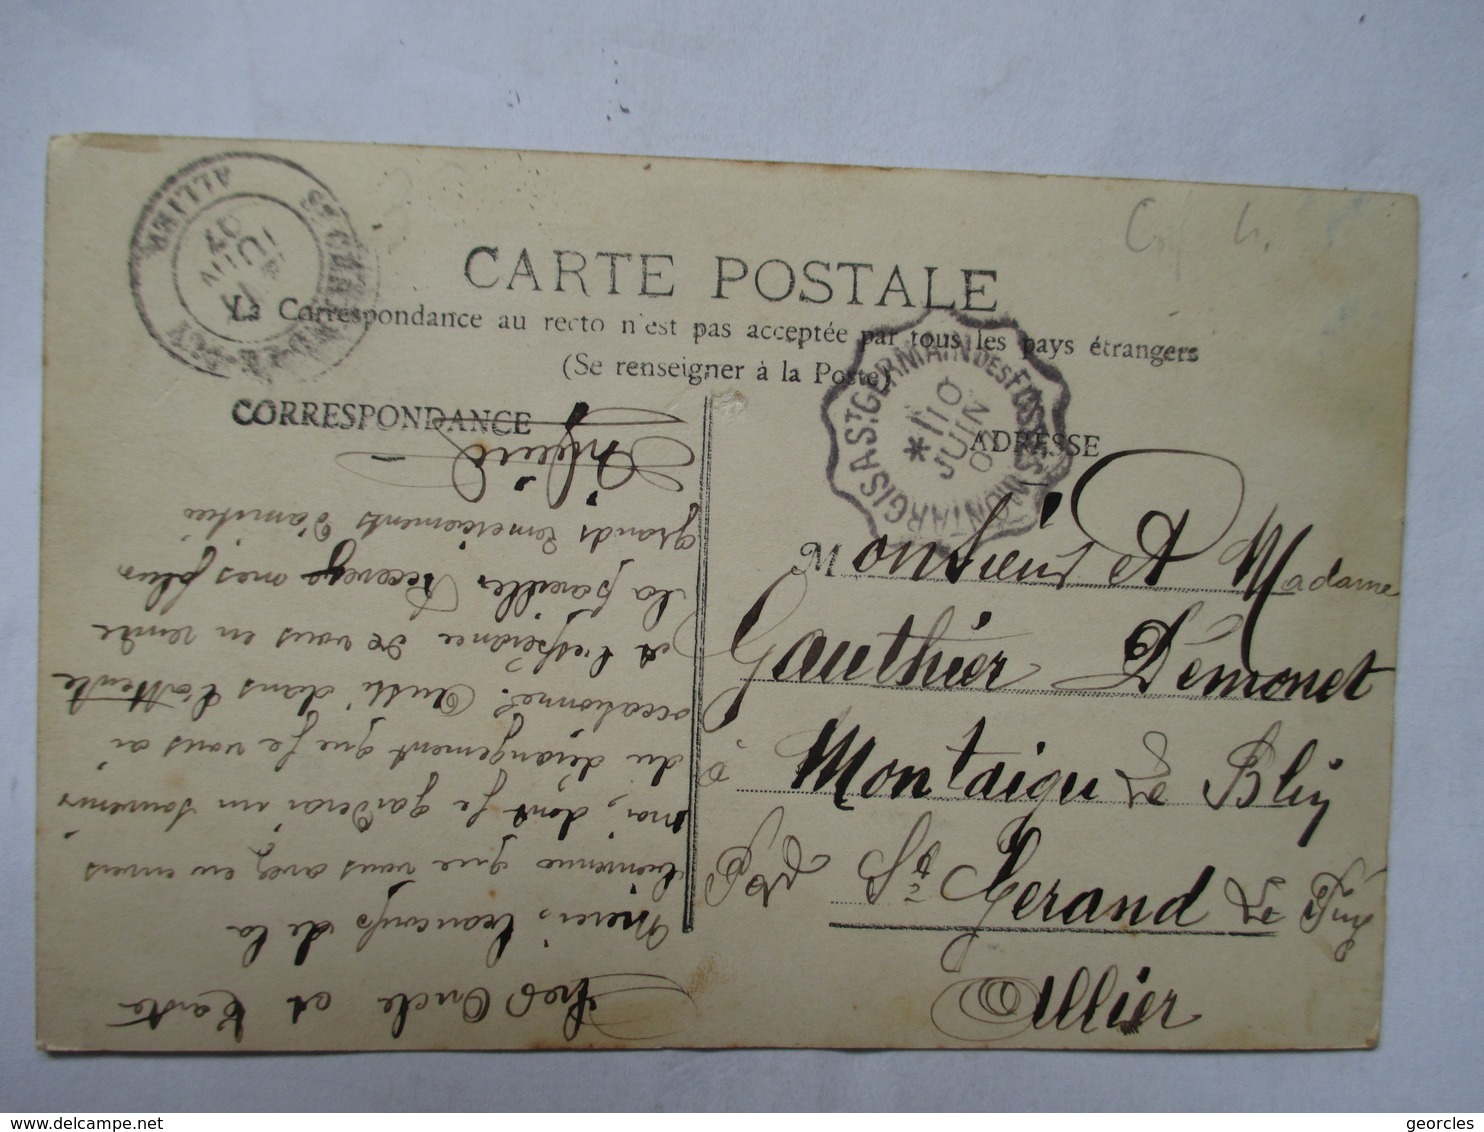 CARTE POSTALE
La Correspondance au recto n'est pas acceptée par tous les pays étrangers
(Se renseigner à la Poste)
CORRESPONDANCE
ADRESSE
ST GERAND-LE-PUY
ALLIER
JUIN
07
MONTARGIS A ST GERMAIN DES FOSSÉS
10
JUIN
0
Monsieur et Madame
Gauthier Démonet
à Montaigu Le Blin
Par St Gerand Le Puy
Allier
Chers Oncle et tante
Merci beaucoup de la
bienvenue que vous avez eu envers
moi, dont je garderai un souvenir
du dérangement que je vous ai
occasionné. Aussi dans l'attente
et l'espérance de vous en rendre
la pareille, Recevez mes plus
grands remerciements d'amitié
delcampe.net
georcles